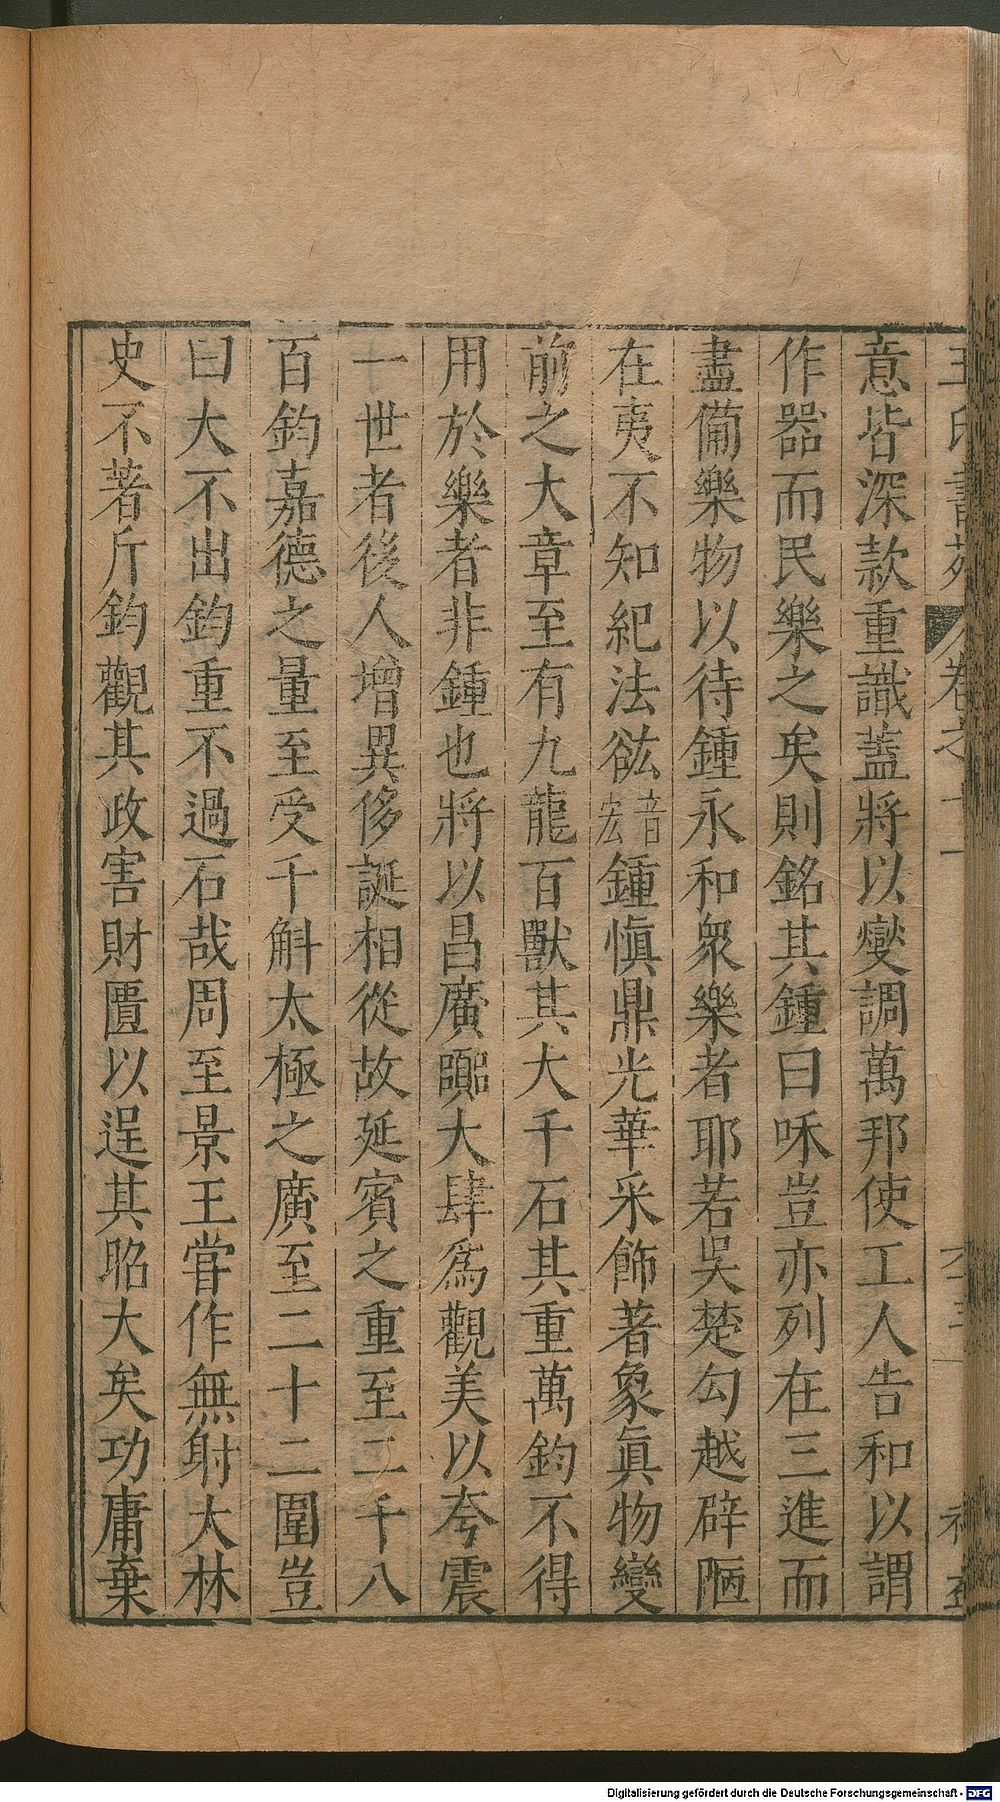 王氏書苑 卷之十一
意皆深款重識蓋將以燮調萬邦使工人告和以謂
作器而民樂之矣則銘其鍾曰咊豈亦列在三進而
盡備樂物以待鍾永和衆樂者耶若吳楚勾越辟陋
在夷不知紀法㰶音宏鍾愼鼎光華采飾著象眞物變
前之大章至有九龍百獸其大千石其重萬鈞不得
用於樂者非鍾也將以昌廣熈大肆爲觀美以夸震
一世者後人增異侈誕相從故延賓之重至二千八
百鈞嘉德之量至受千斛太極之廣至二十二圍豈
曰大不出鈞重不過石哉周至景王甞作無射大林
史不著斤鈞觀其政害財匱以逞其昭大矣功庸棄
Digitalisierung gefördert durch die Deutsche Forschungsgemeinschaft - DFG